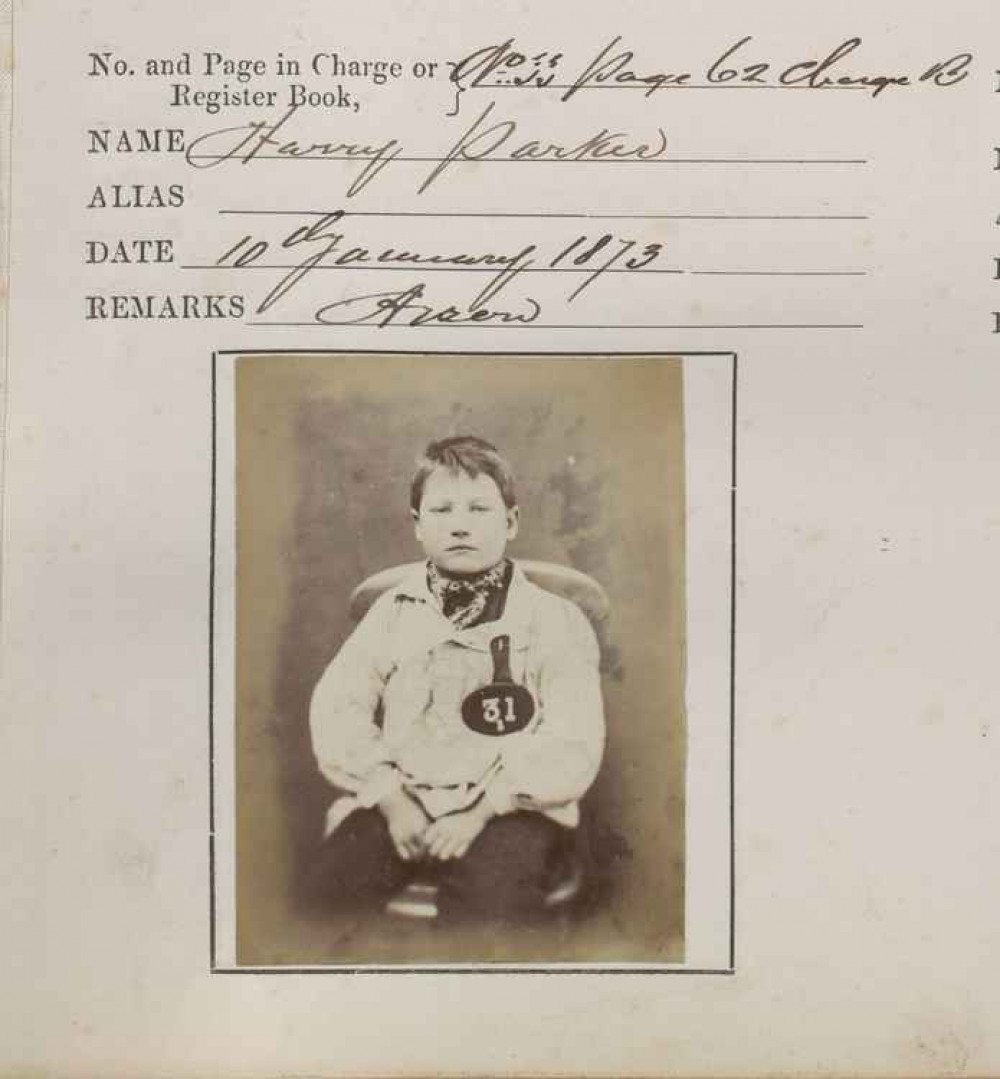 No. and Page in Charge or Page 62 Charge B
Register Book,
NAME Harry Parker
ALIAS
DATE 10th January 1873
REMARKS Arson
31